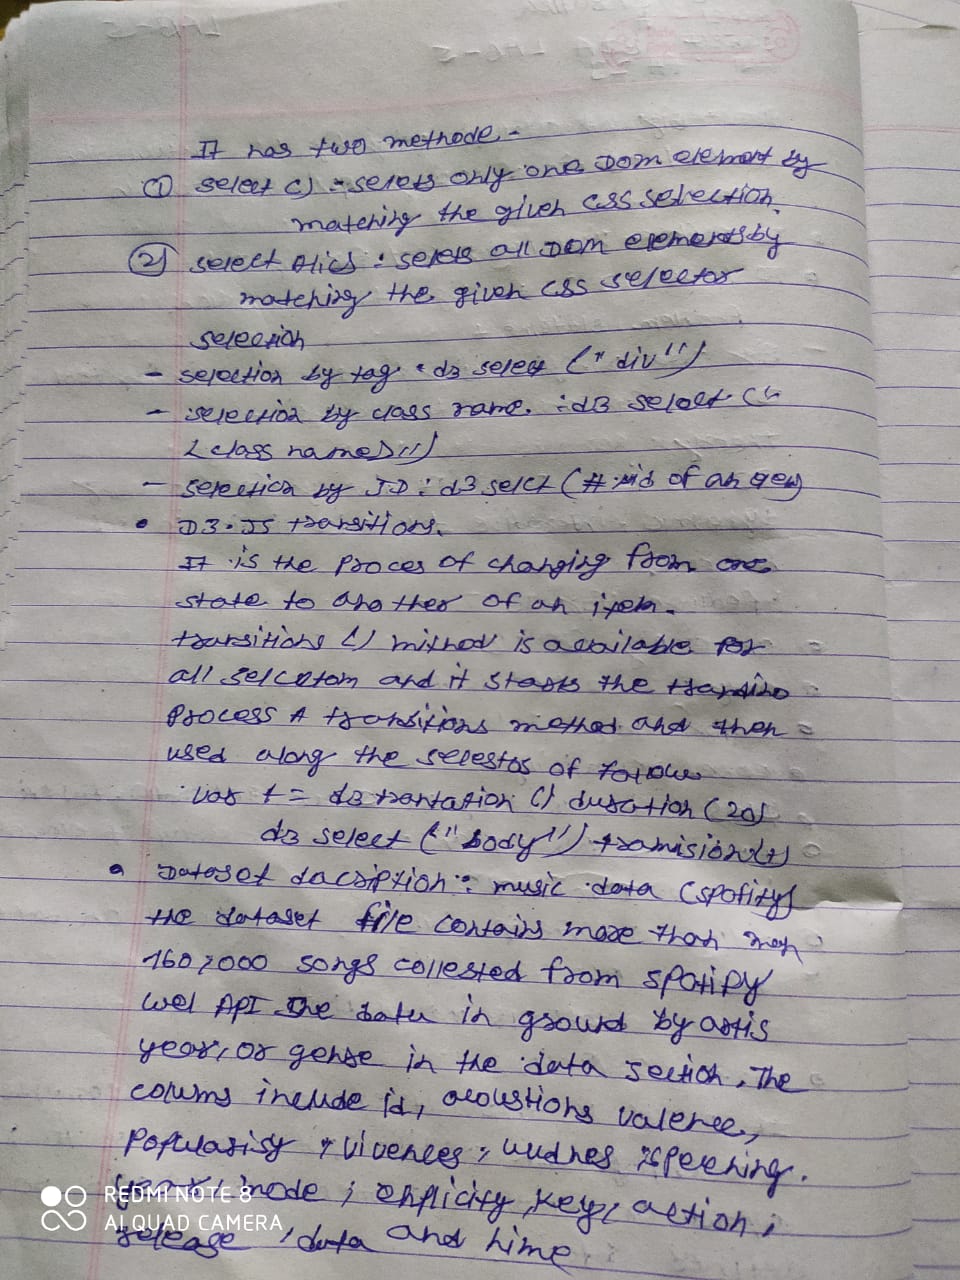 It has two methode -
① select () - selets only one DOM element by
matching the given css selection
② select All() : selets all DOM elements by
matching the given css selector
selection
- selection by tag : d3 select ("div")
- selection by class name. : d3 select ("
<class name>")
- selection by ID : d3 selct (# id of an
• D3.JS transitions.
It is the proces of changing from one
state to another of an item.
transitions () mithod is available for
all and it starts the
process A transitions method and then
used along the of
var t = d3 () duration (20)
d3 select ("body") (t)
• Dataset dacription : music data (spotify)
the dataset file contains more than
160,000 songs collested from spotify
wel API The data in ground by artis
year, or genre in the data section, The
colums include id, valence,
popularisy
mode , key, action,
release , data and
REDMI NOTE 8
AI QUAD CAMERA